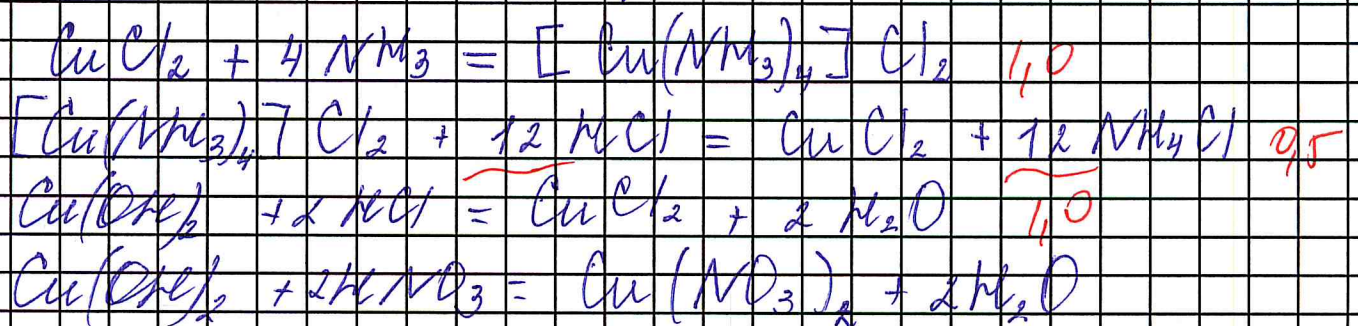 CuCl₂ + 4NH₃ = [Cu(NH₃)₄]Cl₂ 1,0
[Cu(NH₃)₄]Cl₂ + 12HCl = CuCl₂ + 12NH₄Cl 0,5
Cu(OH)₂ + 2HCl = CuCl₂ + 2H₂O 1,0
Cu(OH)₂ + 2HNO₃ = Cu(NO₃)₂ + 2H₂O